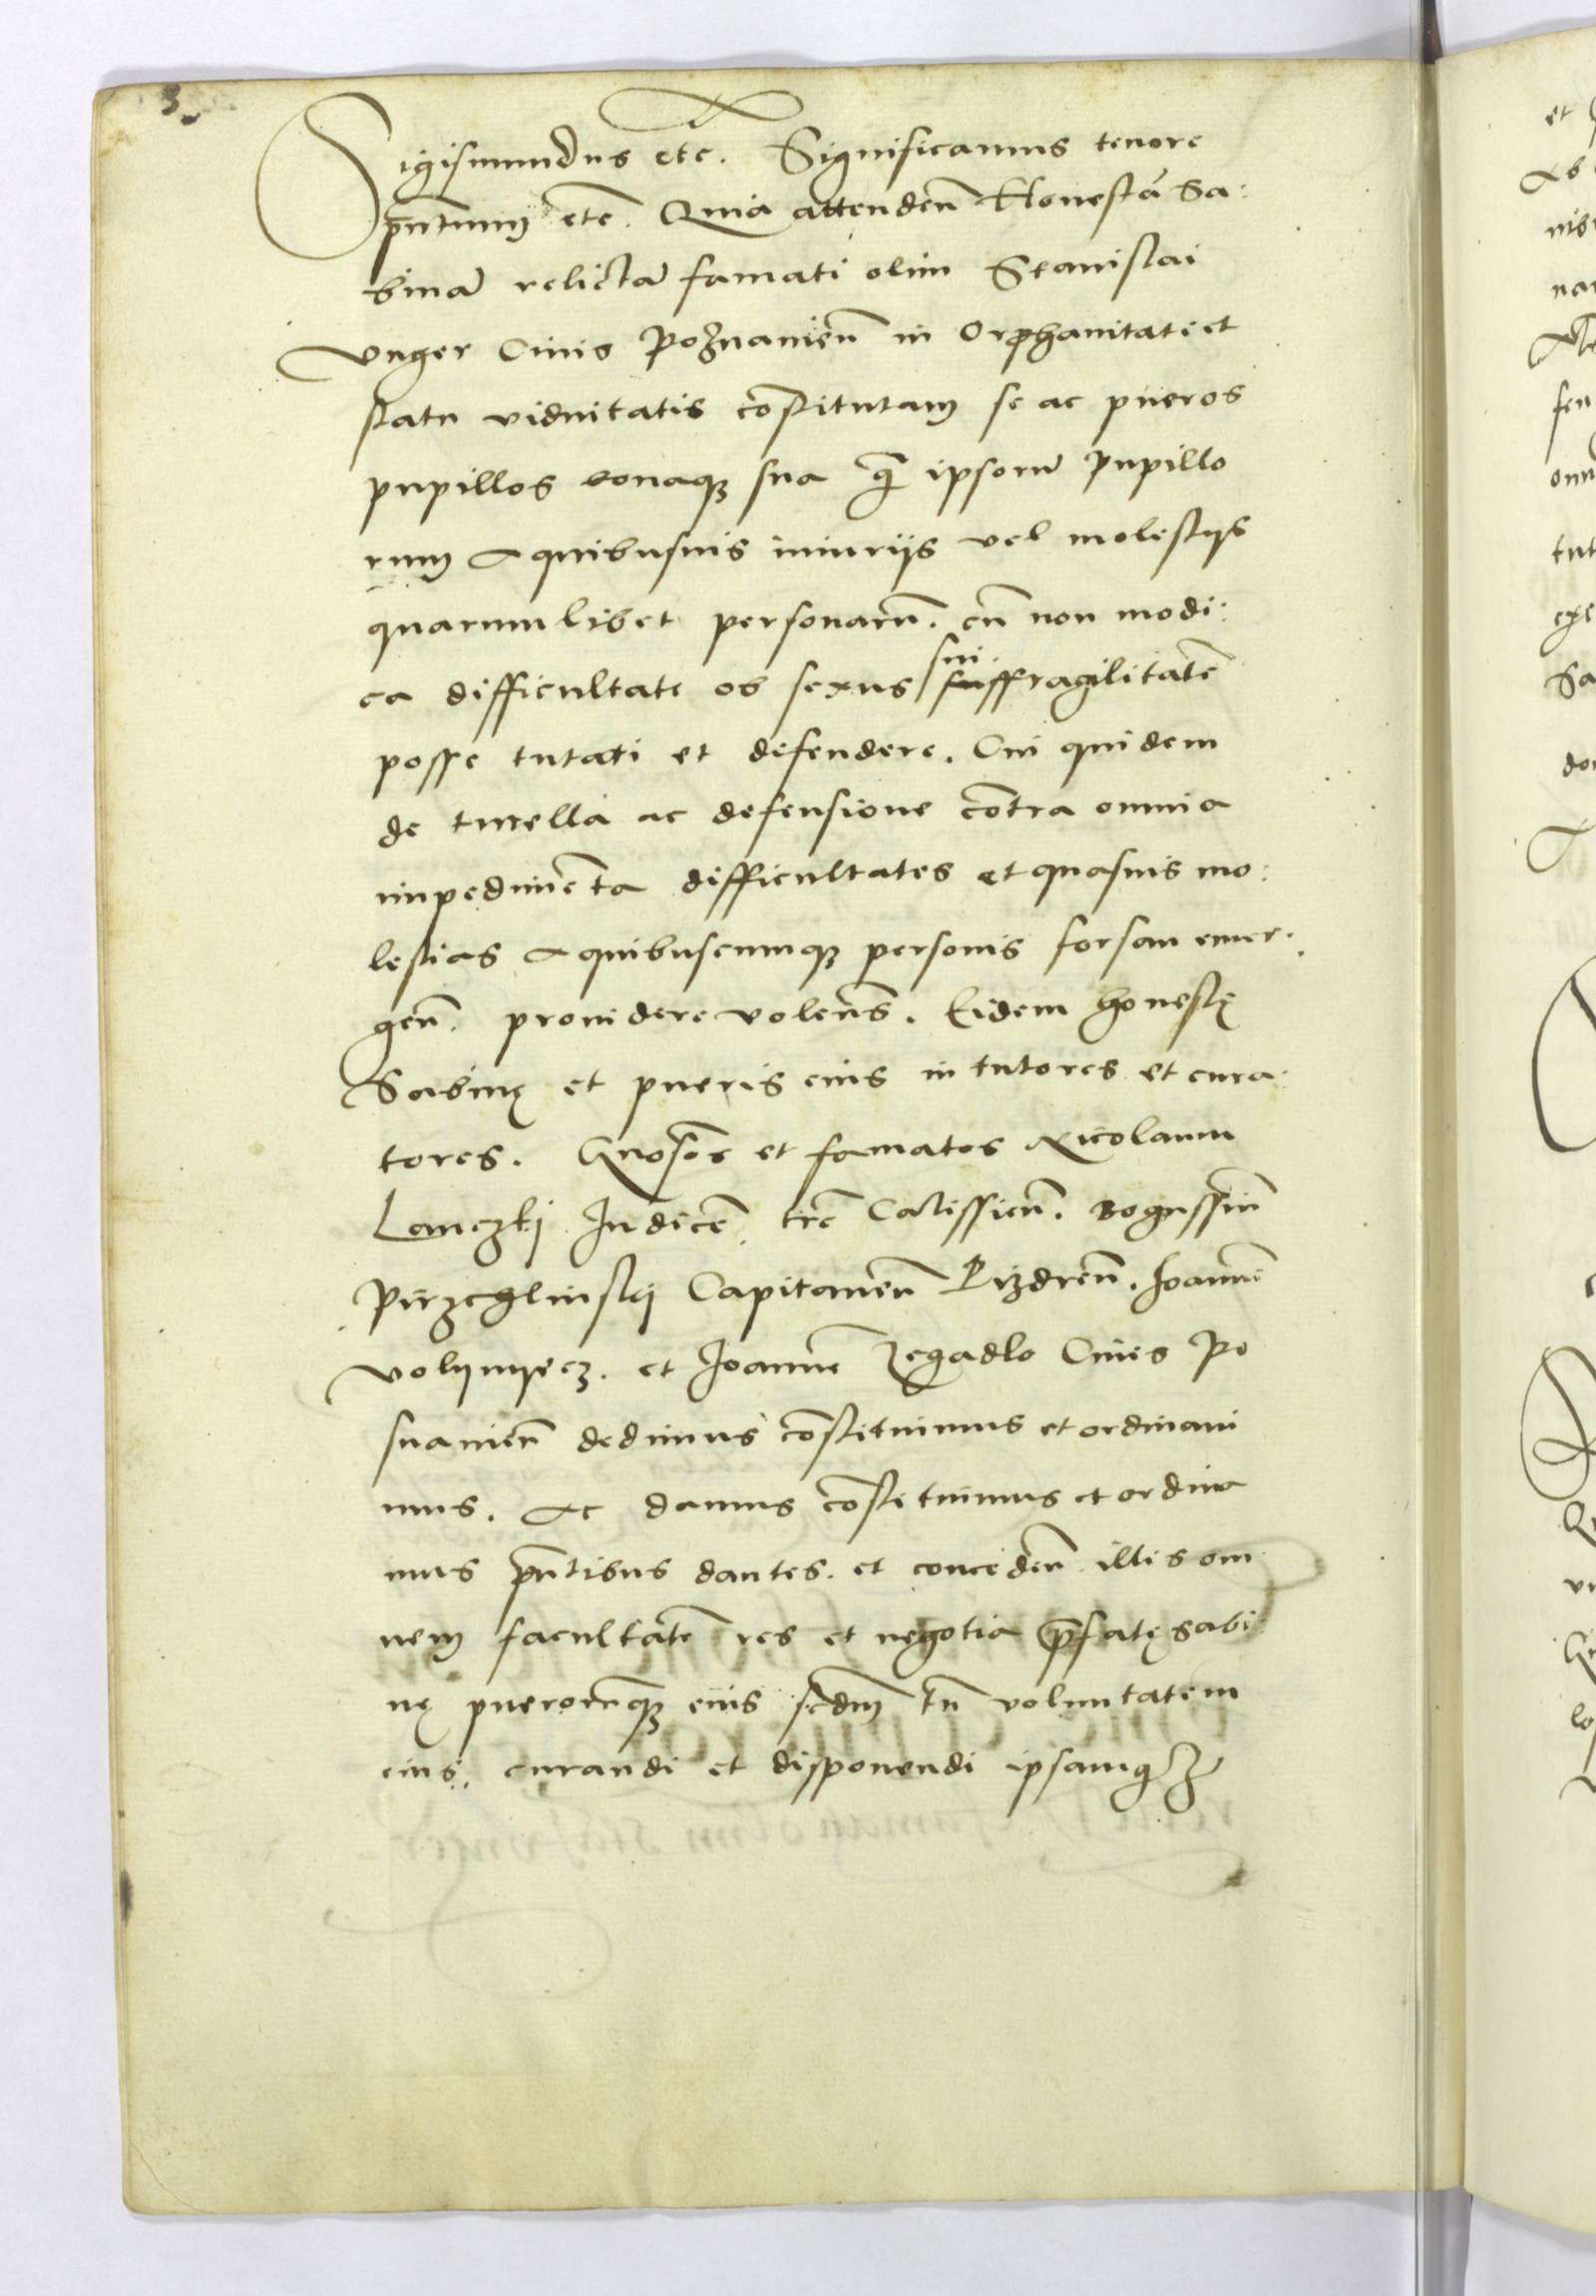 3
Sigismundus etc. Significamus tenore
pñtium etc. Quia attendeñ Honestã Sa:
binã relictã famati olim Stanislai
Vnger Ciuis Poznanieñ in Orphanitate et
statu viduitatis cõstitutam se ac pueros
pupillos bonaqȝ sua q̃ ipsorũ pupillo
rum a quibusuis iniurijs vel molestijs
quarumlibet personarũ. cũ non modi:
ca difficultate ob sexus sui fragilitatẽ
posse tutati et defendere. Cui quidem
de tutella ac defensione cõtra omnia
impedimẽta difficultates et quasuis mo:
lestias a quibuscumqȝ personis forsan emer.
geñ. prouidere volẽns. Eidem honestę
Sabinę et pueris eius in tutores et cura
tores. Gñosos et famatos Nicolaum
Lanczkj Judicẽ tr̃e Calissieñ. Bogussiũ
Pirzeglinskj Capitaneũ Pizdreñ. Joannẽ
Volympecz. et Joannẽ Zegadlo Ciues Po
snanieñ dedimus cõstituimus et ordinaui
mus. Ac damus cõstituimus et ordina
mus pñtibus dantes. et concedeñ illis om
nem facultatẽ res et negotia p̃fatę Sabi
nę puerorũqȝ eius scdm tñ voluntatem
eius. curandi et disponendi ipsamqȝ
et
Ab
nib
nar
fen
omn
tut
exe
Sa
don
lo